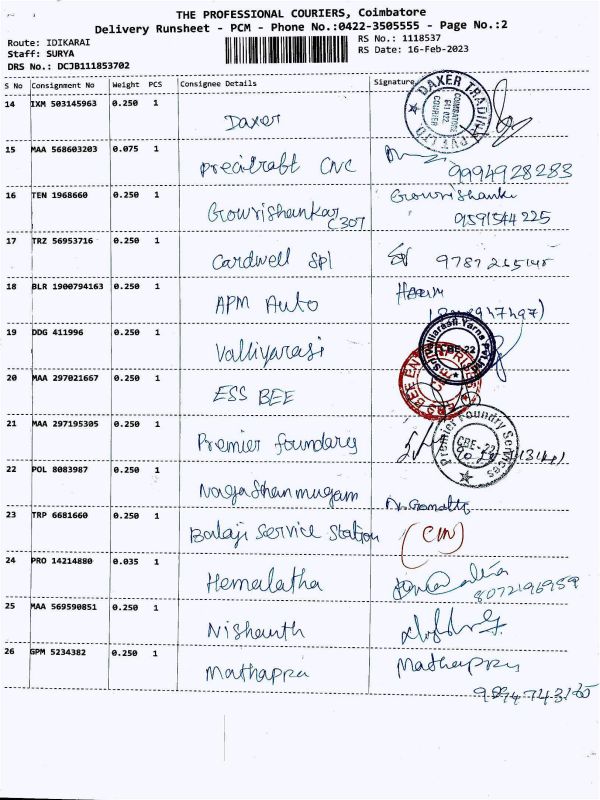 THE PROFESSIONAL COURIERS, Coimbatore
Delivery Runsheet - PCM - Phone No.:0422-3505555 - Page No.:2
Route: IDIKARAI
Staff: SURYA
DRS No.: DCJB111853702
RS No.: 1118537
RS Date: 16-Feb-2023
S No Consignment No Weight PCS Consignee Details Signature
14 IXM 503145963 0.250 1 Daxer DAXER TRADING
15 MAA 568603203 0.075 1 CNC 9994928283
16 TEN 1968660 0.250 1 Gowrishankar C307 9591544225
17 TRZ 56953716 0.250 1 Cardwell Spl
18 BLR 1900794163 0.250 1 APM Auto
19 DDG 411996 0.250 1 Valliyarasi CBE-22
20 MAA 297021667 0.250 1 ESS BEE
21 MAA 297195305 0.250 1 Premier foundary Premier Foundry Services CBE-22
22 POL 8083987 0.250 1 Nagashanmugam
23 TRP 6681660 0.250 1 Balaji Service Station
24 PRO 14214880 0.035 1 Hemalatha 8072196959
25 MAA 569590851 0.250 1 Nishanth
26 GPM 5234382 0.250 1 Mathapri